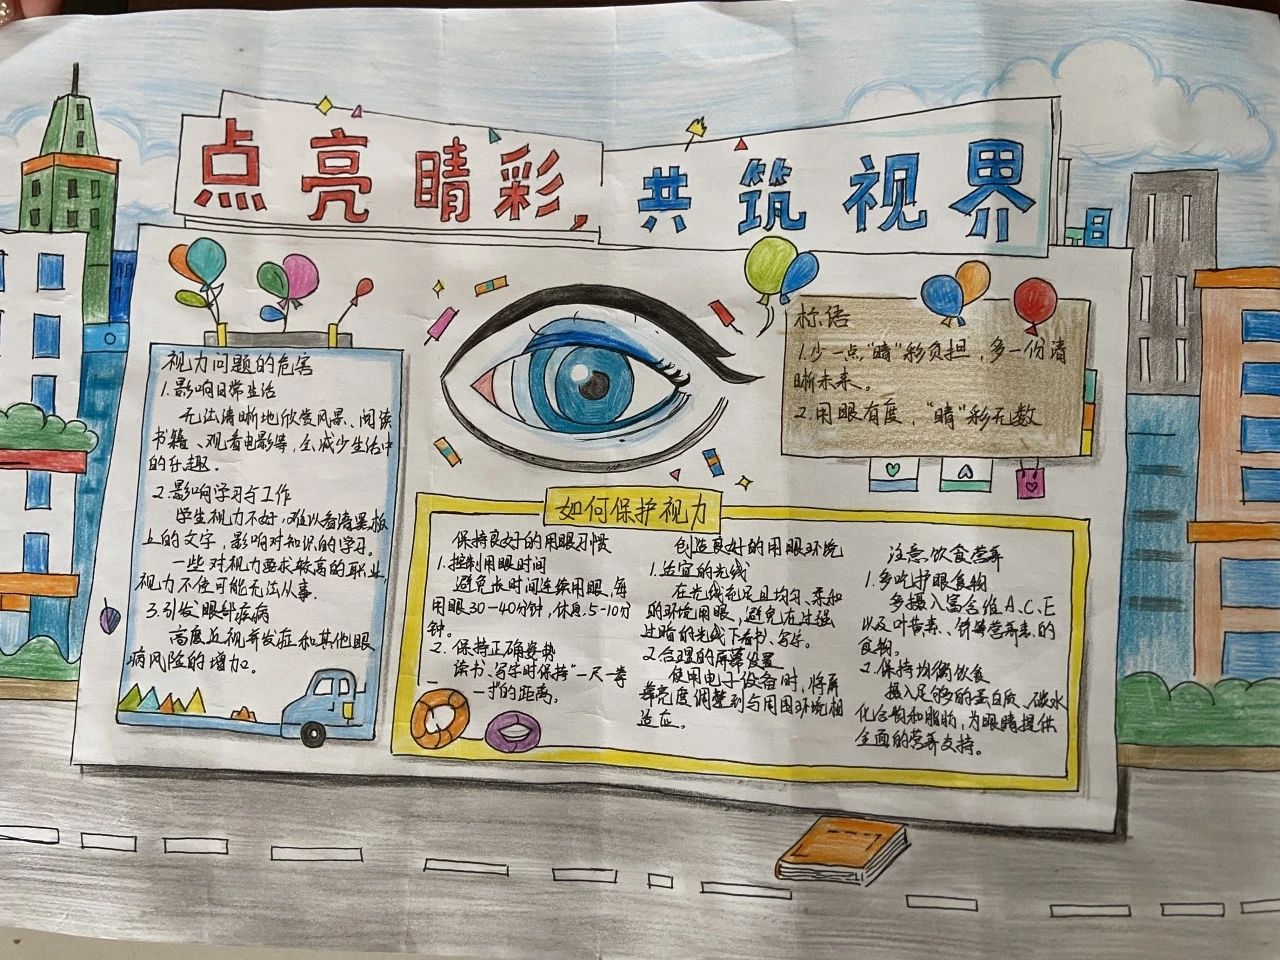 点亮睛彩，共筑视界
视力问题的危害
1.影响日常生活
无法清晰地欣赏风景、阅读
书籍、观看电影等，会减少生活中
的乐趣。
2.影响学习与工作
学生视力不好，难以看清黑板
上的文字，影响对知识的学习。
一些对视力要求较高的职业，
视力不佳可能无法从事.
3.引发眼部疾病
高度近视并发症和其他眼
病风险的增加。
标语
1.少一点，"睛"彩负担，多一份清
晰未来。
2.用眼有度，"睛"彩无数
如何保护视力
保持良好的用眼习惯
1.控制用眼时间
避免长时间连续用眼，每
用眼30-40分钟，休息5-10分
钟。
2.保持正确姿势
读书、写字时保持"一尺一拳
一寸"的距离。
创造良好的用眼环境
1.适宜的光线
在光线充足且均匀、柔和
的环境用眼，避免在过强
过暗的光线下看书、写字。
2.合理的屏幕设置
使用电子设备时，将屏
幕亮度调整到与周围环境相
适应。
注意饮食营养
1.多吃护眼食物
多摄入富含维A、C、E
以及叶黄素、锌等营养素的
食物。
2.保持均衡饮食
摄入足够的蛋白质、碳水
化合物和脂肪，为眼睛提供
全面的营养支持。